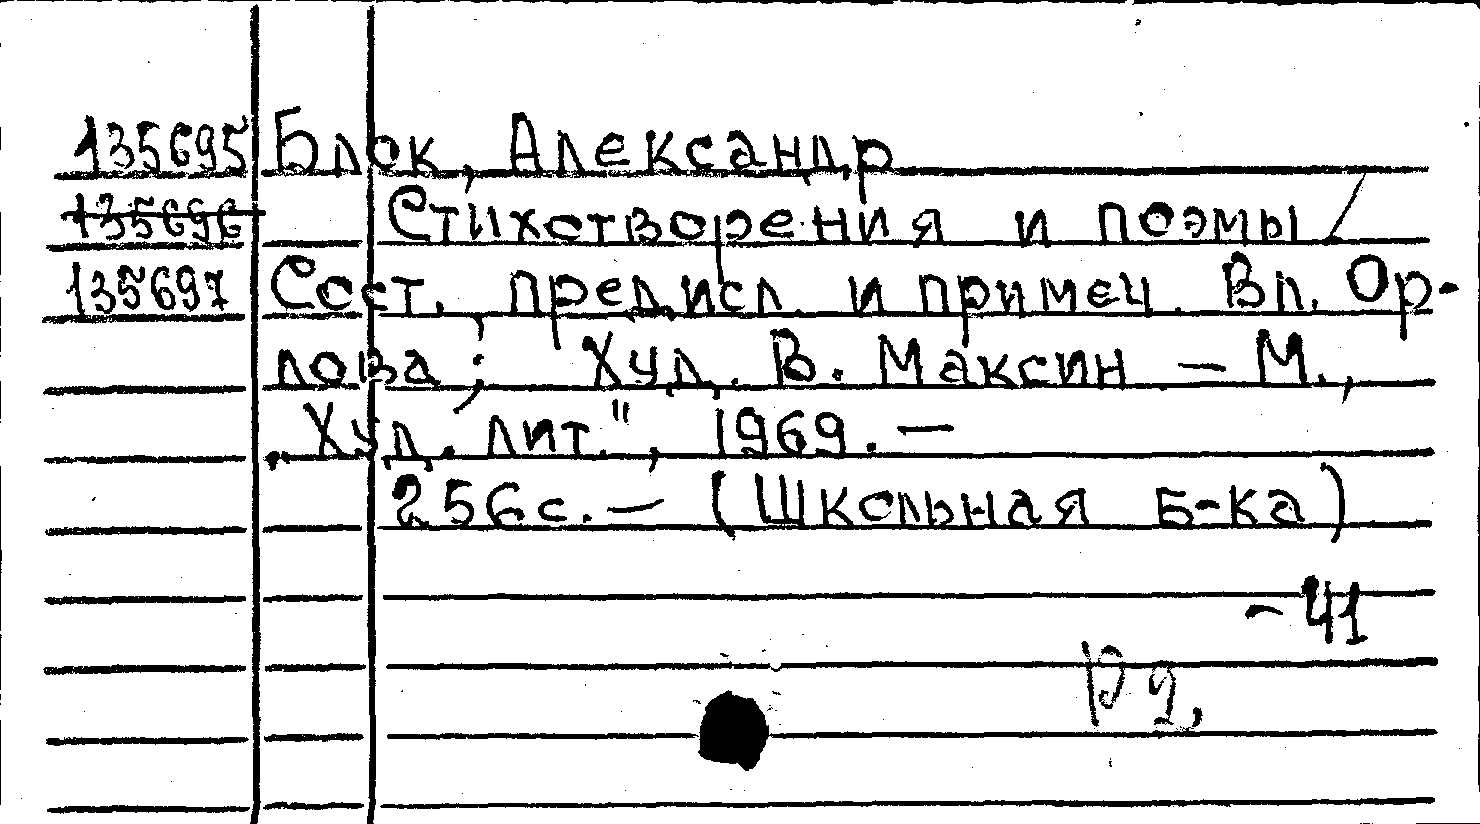 135695 Блок, Александр
135696 Стихотворения и поэмы /
135697 Сост., предисл. и примеч. Вл. Ор-
лова; Худ. В. Максин — М.,
„Худ. лит.", 1969. —
256с. — (Школьная б-ка)
- 41